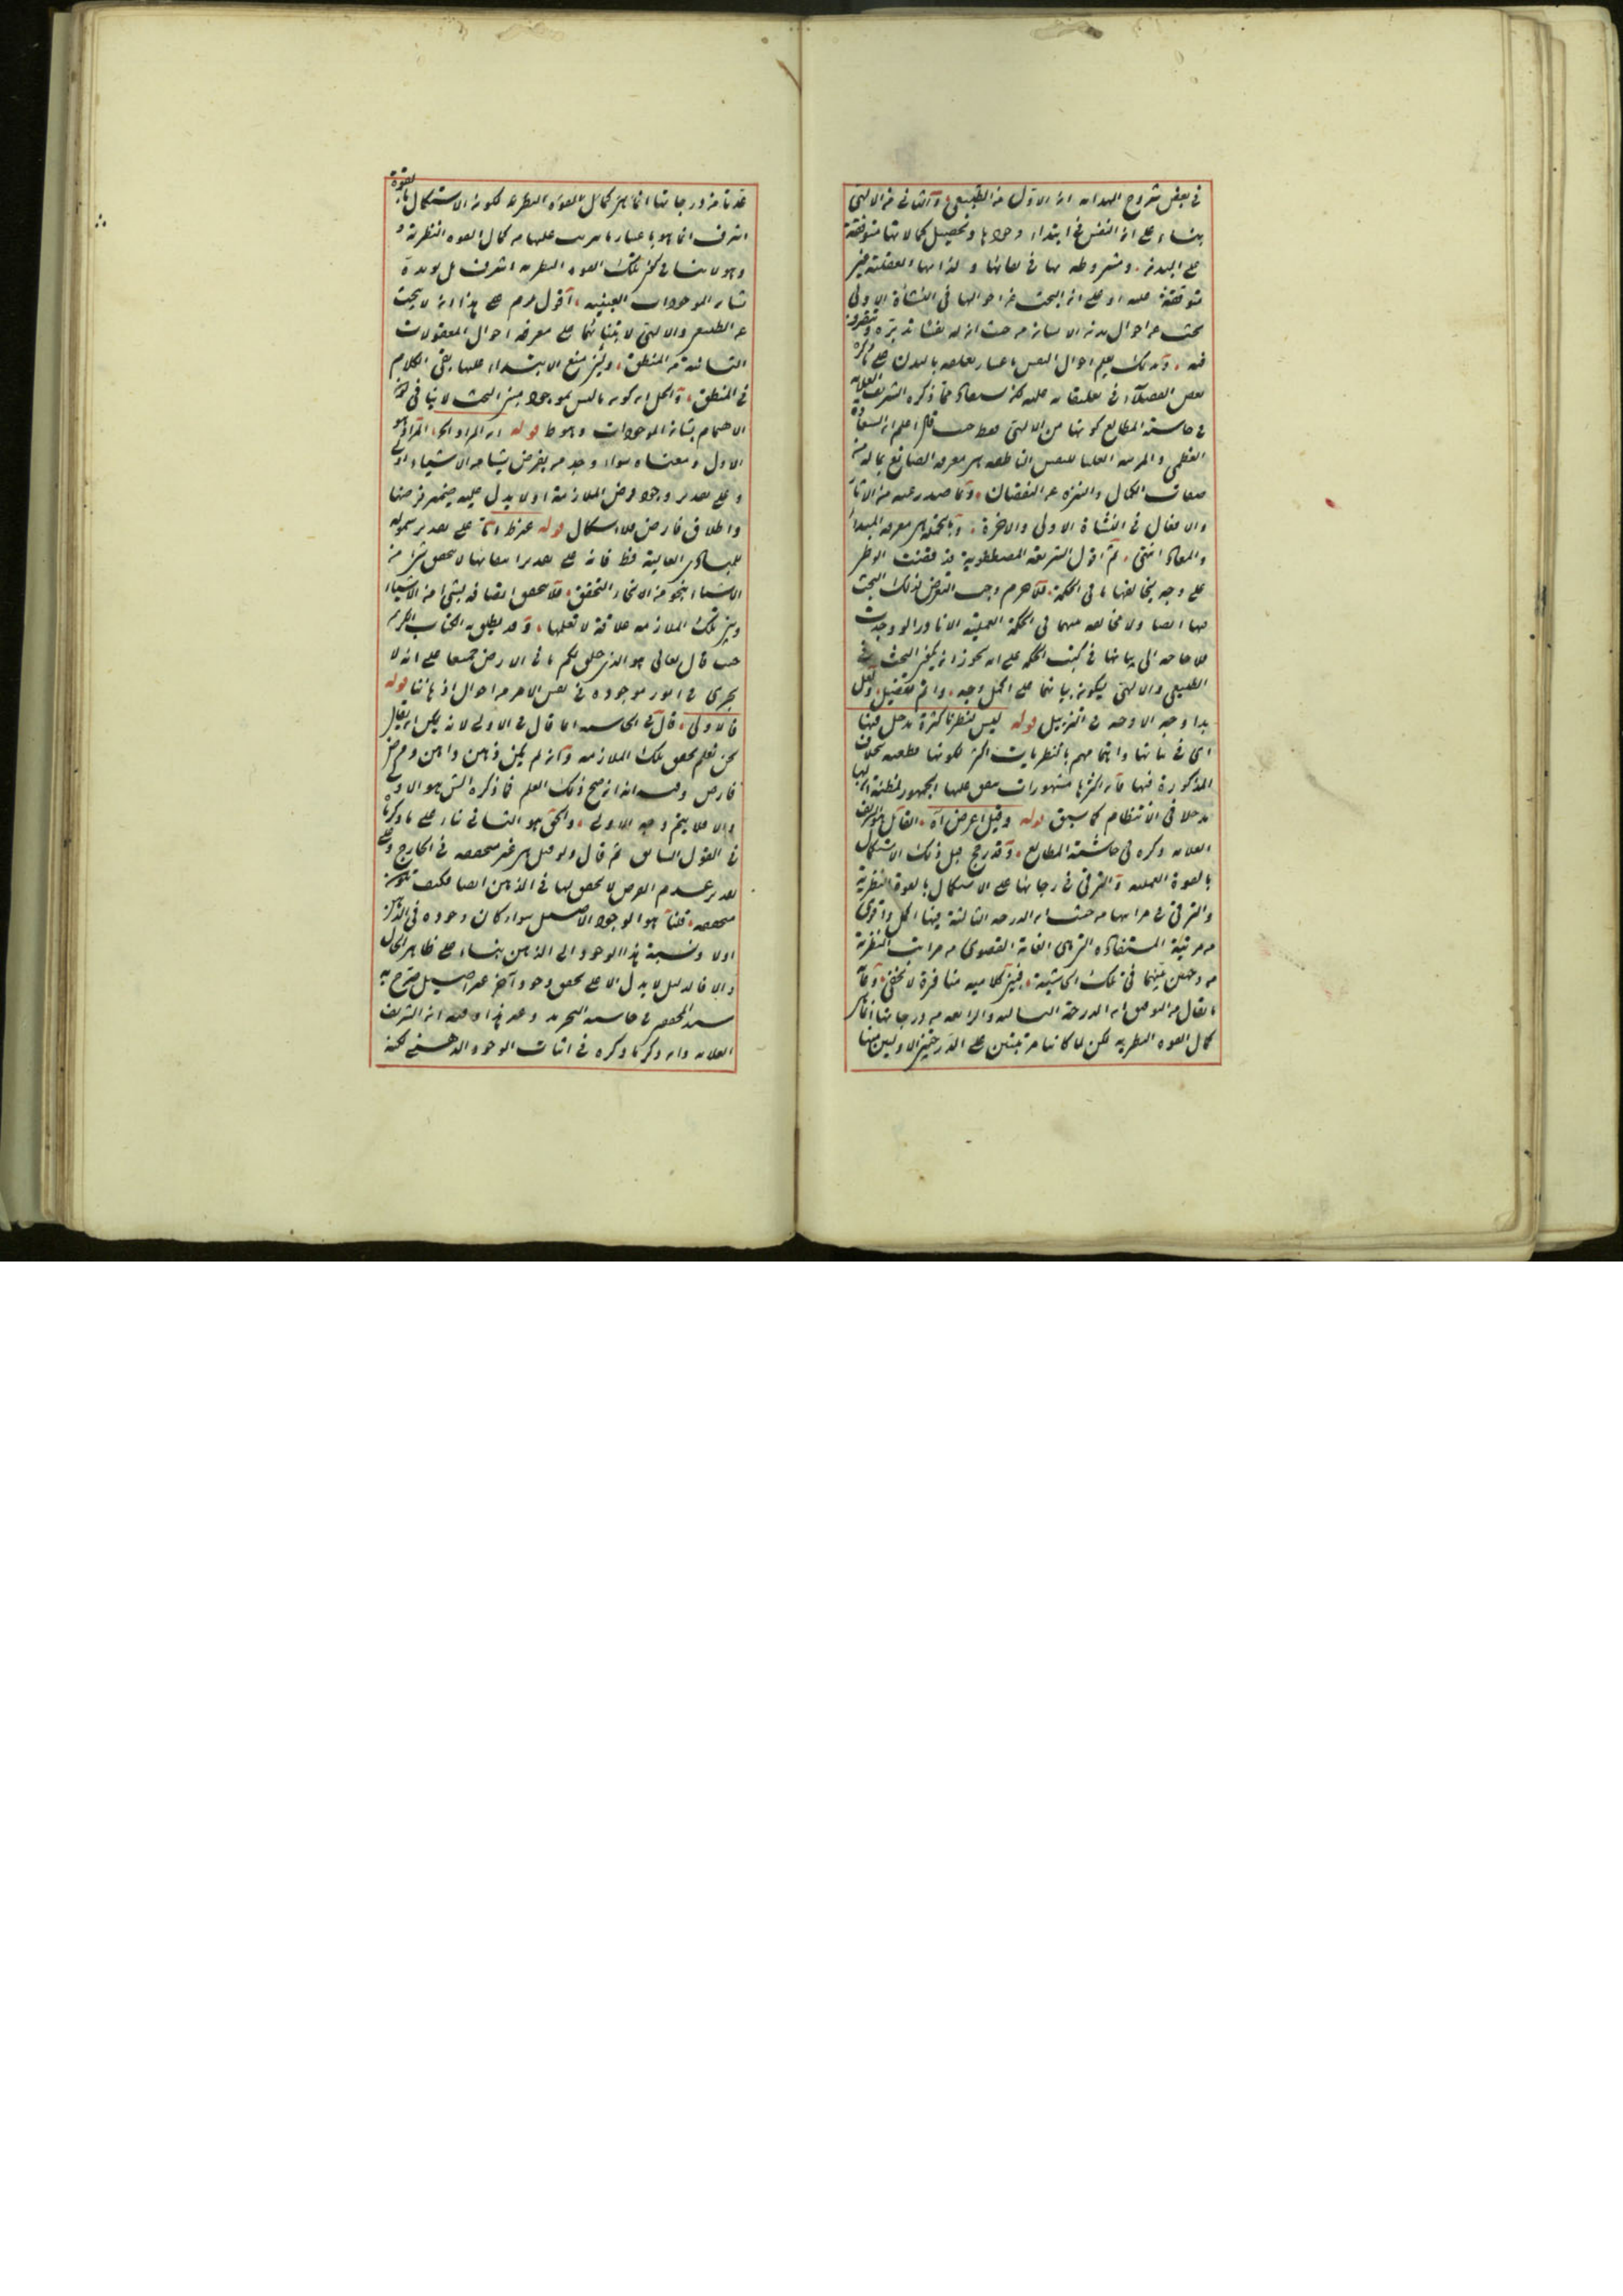 في بعض شروح الهدايه ان الاول من الطبيعي والثاني من الالهي
بناء على ان النفس في ابتداء وجودها وتحصيل كمالاتها متوقفة
على البدن ومشروطه بها في العقلية غير
متوقفة عليه او على ان البحث عن احوالها في النشأة الاولى
بحث عن احوال بدن الانسان من حيث ان له نفسا تدبره وتتصرف
فيه وبذلك يعلم احوال النفس باعتبار تعلقه بالبدن على ما ذكره
بعض الفضلاء في تعليقاته مما ذكره الشريف العلامه
في حاشية المطالع كونها من الالهي فقط حيث قال اعلم ان السعادة
العظمى والمرتبه العليا للنفس الناطقه هي معرفه الصانع بما له من
صفات الكمال والتنزه عن النقصان وبما صدر عنه من الآثار
والافعال في النشأة الاولى والاخرة وبالجمله هي معرفه المبدأ
والمعاد انتهى ثم اقول الشريعه المصطفوية قد قضت الوطر
على وجه يخالفها ما في الحكمة فلا جرم وجب التعرض لذلك البحث
فيها ايضا ولا مخالفه بينهما في الحكمة العملية الا نادرا
فلا حاجه الى بيانها في كتب الحكمه على انه يجوز ان يكون البحث في
الطبيعي والالهي ليكون بيانهما على اكمل وجه واتم تفصيل ولعل
هذا وجه الاوجه في التنزيل قوله ليس لنظرنا كثرة مدخل فيها
اي في بيانها واهتمامهم بالنظريات اكثر لكونها قطعيه بخلاف
المذكورة فيها فان اكثرها مشهورات يتفق عليها الجمهور لمظنة ان لها
مدخلا في الانتظام كما سبق قوله وقيل اعرض اه القائل هو الشريف
العلامه ذكره في حاشية المطالع وقد رجح قبل ذلك الاستكمال
بالقوة العمليه والترقي في درجاتها على الاستكمال بالقوة النظرية
والترقي في مراتبها من حيث ان الدرجه الثالثة منها اكمل واقوى
من مرتبة المستفاد التي هي الغاية القصوى من مراتب النظرية
من وجهين بينهما في تلك الحاشية فبين كلاميه منافرة لا تخفى وما
يقال من التوفيق ان الدرجة الثالثه والرابعه من درجاتها انما هي
كمال القوه النظريه لكن لما كانتا مرتبتين على الدرجتين الاوليين منها
عدتا من درجاتها انما هي كمال القوة النظريه لكون الاستكمال بالقوة
اشرف انما هو باعتبار ما يترتب عليها من كمال القوه النظرية
وهو لا ينافي كون تلك القوه النظريه اشرف بل يؤيده
سائر الموجودات العينيه اقول يلزم على هذا ان لا يبحث
عن الطبيعي والالهي لابتنائهما على معرفه احوال المعقولات
الثانية من المنطق وبين منع الابتداء عليها بقي الكلام
في المنطق والحل ان كونه ما ليس بموجود بين البحث لا ينافي كون
الاهتمام بشان الموجودات وهو ط قوله ان المراد اه المراد هو
الاول ومعناه سواء وجد من يفرض شيئا من الاشياء او لا
وعلى تقدير وجود فرض الملازمة او لا يدل عليه ضمير فرضها
واطلاق فارض فلا اشكال قوله على تقدير شموله
للمبادى العالية فظ فانه على تقدير انتفائها لا يتحقق شئ من
الاشياء بنحو من الانحاء التحقق فلا يتحقق اتصافه بشئ من الاشياء
وبين تلك الملازمه علاقة لا نعلمها وقد ينطق به الكتاب الكريم
حيث قال تعالى هو الذي خلق لكم ما في الارض جميعا على انه لا
يجرى في امور موجوده في نفس الامر من احوال اذهاننا قوله
فالاولى قال في الحاشيه انما قال في الاولى لانه يمكن ان يقال
نحن نعلم تحقق تلك الملازمه وان لم يكن ذهن ذاهن وفرض
فارض وفيه انه ان صح ذلك العلم فما ذكره الش هو الاولى
والا فلا يتم وجه الاولى والحق هو الثاني بناء على ما ذكرنا
في القول السابق ثم قال ولو قيل هي غير متحققه في الخارج وعلى
تقدير عدم الفرض لا تحقق لها في الذهن ايضا فكيف تكون
متحققه قلنا هو الوجود الاصيل سواء كان وجوده في الذهن
اولا ونسبة هذا الوجود الى الذهن بناء على ظاهر الحال
والا فالدليل لا يدل الا على تحقق وجود آخر غير اصيل صرح به
سيد المحققين في حاشيه التجريد وعد هذا وفيه ان الشريف
العلامه وان ذكر ما ذكره في اثبات الوجود الذهني لكنه